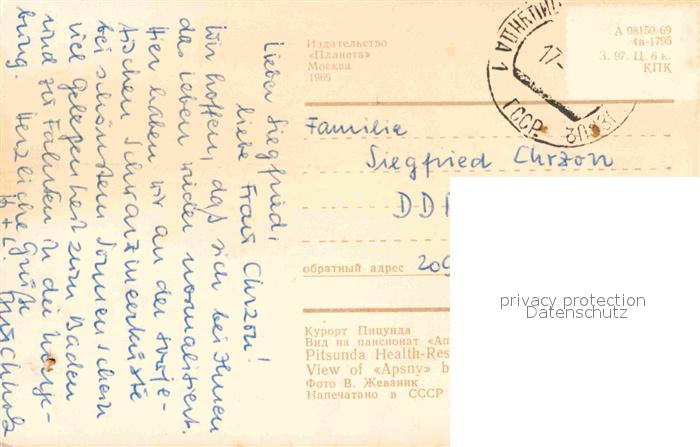 Lieber Siegfried,
liebe Frau Chrzon!
Wir hoffen, daß sich bei Ihnen
das Leben wieder normalisiert.
Hier haben wir an der sowje-
tischen Schwarzmeerküste
bei schönstem Sonnenschein
viel Gelegenheit zum Baden
und zu Fahrten in die Umge-
bung. Herzliche Grüße
Издательство
«Планета»
Москва
1969
А 08150·69
4в-1795
З. 97. Ц. 6 к.
КПК
НДА 1
17-
ГССР
Familie
Siegfried Chrzon
DD
обратный адрес 209
privacy protection
Datenschutz
Курорт Пицунда
Вид на пансионат «Ап
Pitsunda Health-Res
View of «Apsny» b
Фото В. Жеваник
Напечатано в СССР